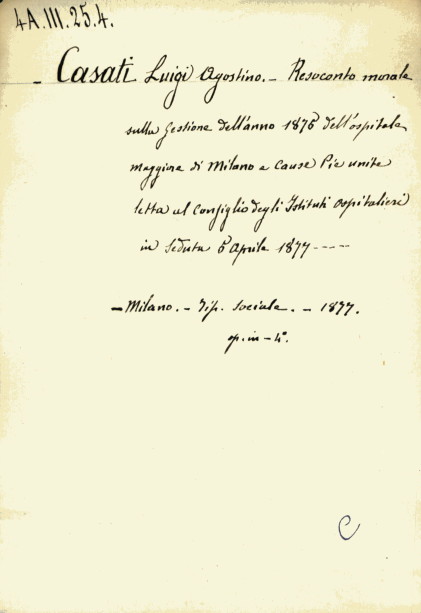 4A.III.25.4.
- Casati Luigi Agostino. - Resoconto morale
sulla Gestione dell'anno 1876 dell'ospitale
maggiore di Milano e Cause Pie unite
letta al Consiglio degli Istituti Ospitalieri
in Seduta 6 Aprile 1877 ----
- Milano. - Tip. sociale. - 1877.
op. in - 4°.
C